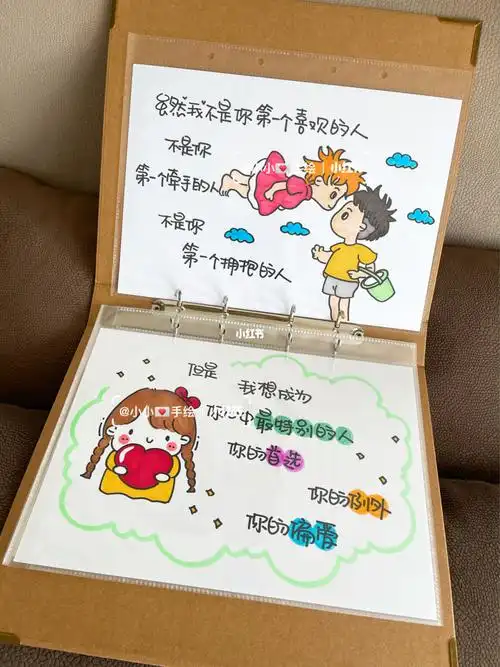 虽然我不是你第一个喜欢的人
不是你
第一个牵手的人
不是你
第一个拥抱的人
小红书
但是
我想成为
你心中最特别的人
你的首选
你的例外
你的偏爱
@小小💟手绘